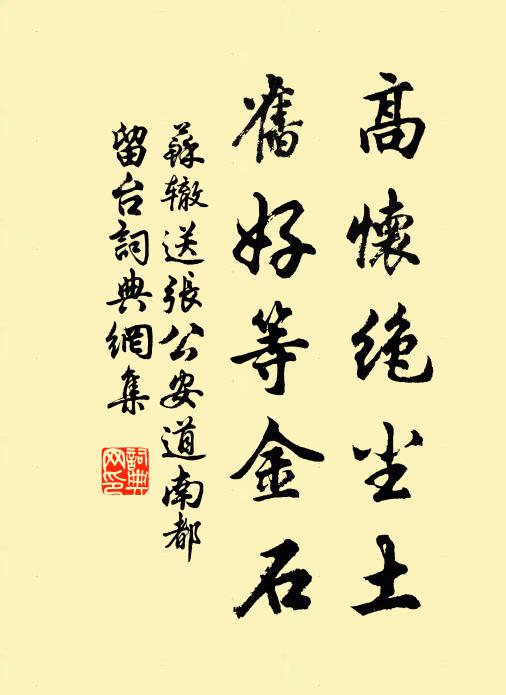 高懷绝尘土
舊好等金石
蘇辙送張公安道南都
留台詞典網集
詞典网印